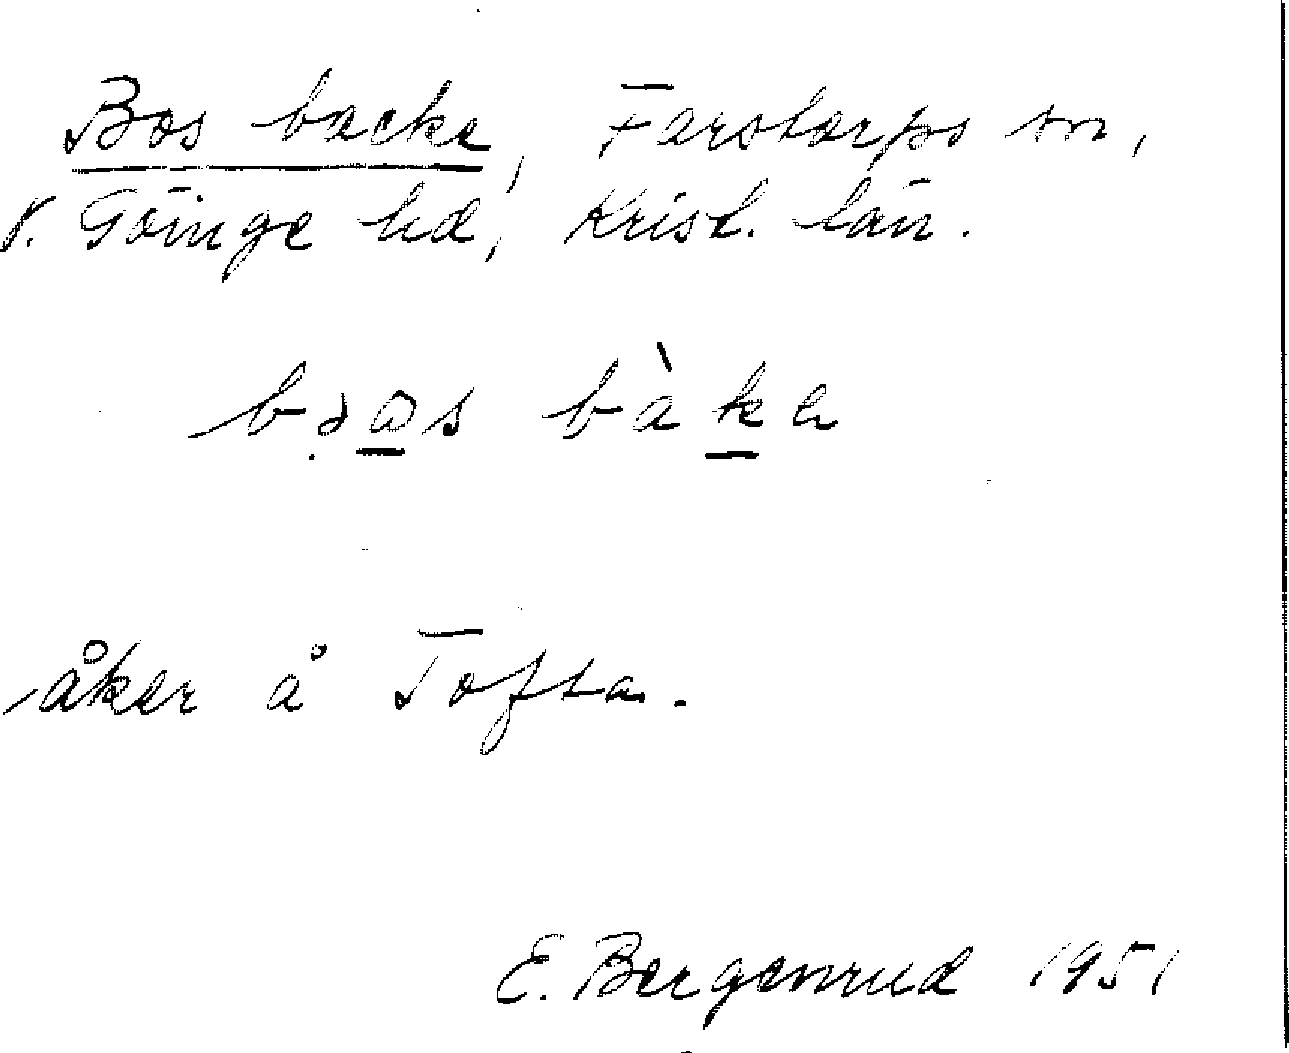 Bos backe, Farstorps sn,
V. Göinge hd, Krist. län.
bɹɑs bàka
åker å Tofta.
E. Bergenrud 1951